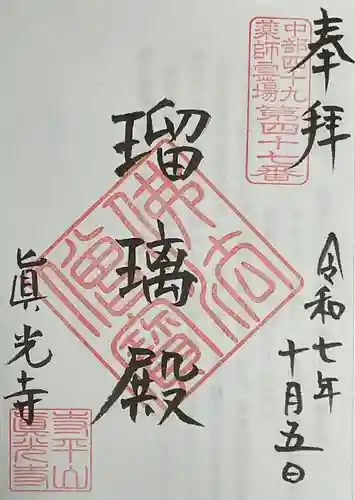 奉拝
中部四十九
薬師霊場第四十七番
令和七年
十月五日
瑠璃殿
佛法僧寶
眞光寺